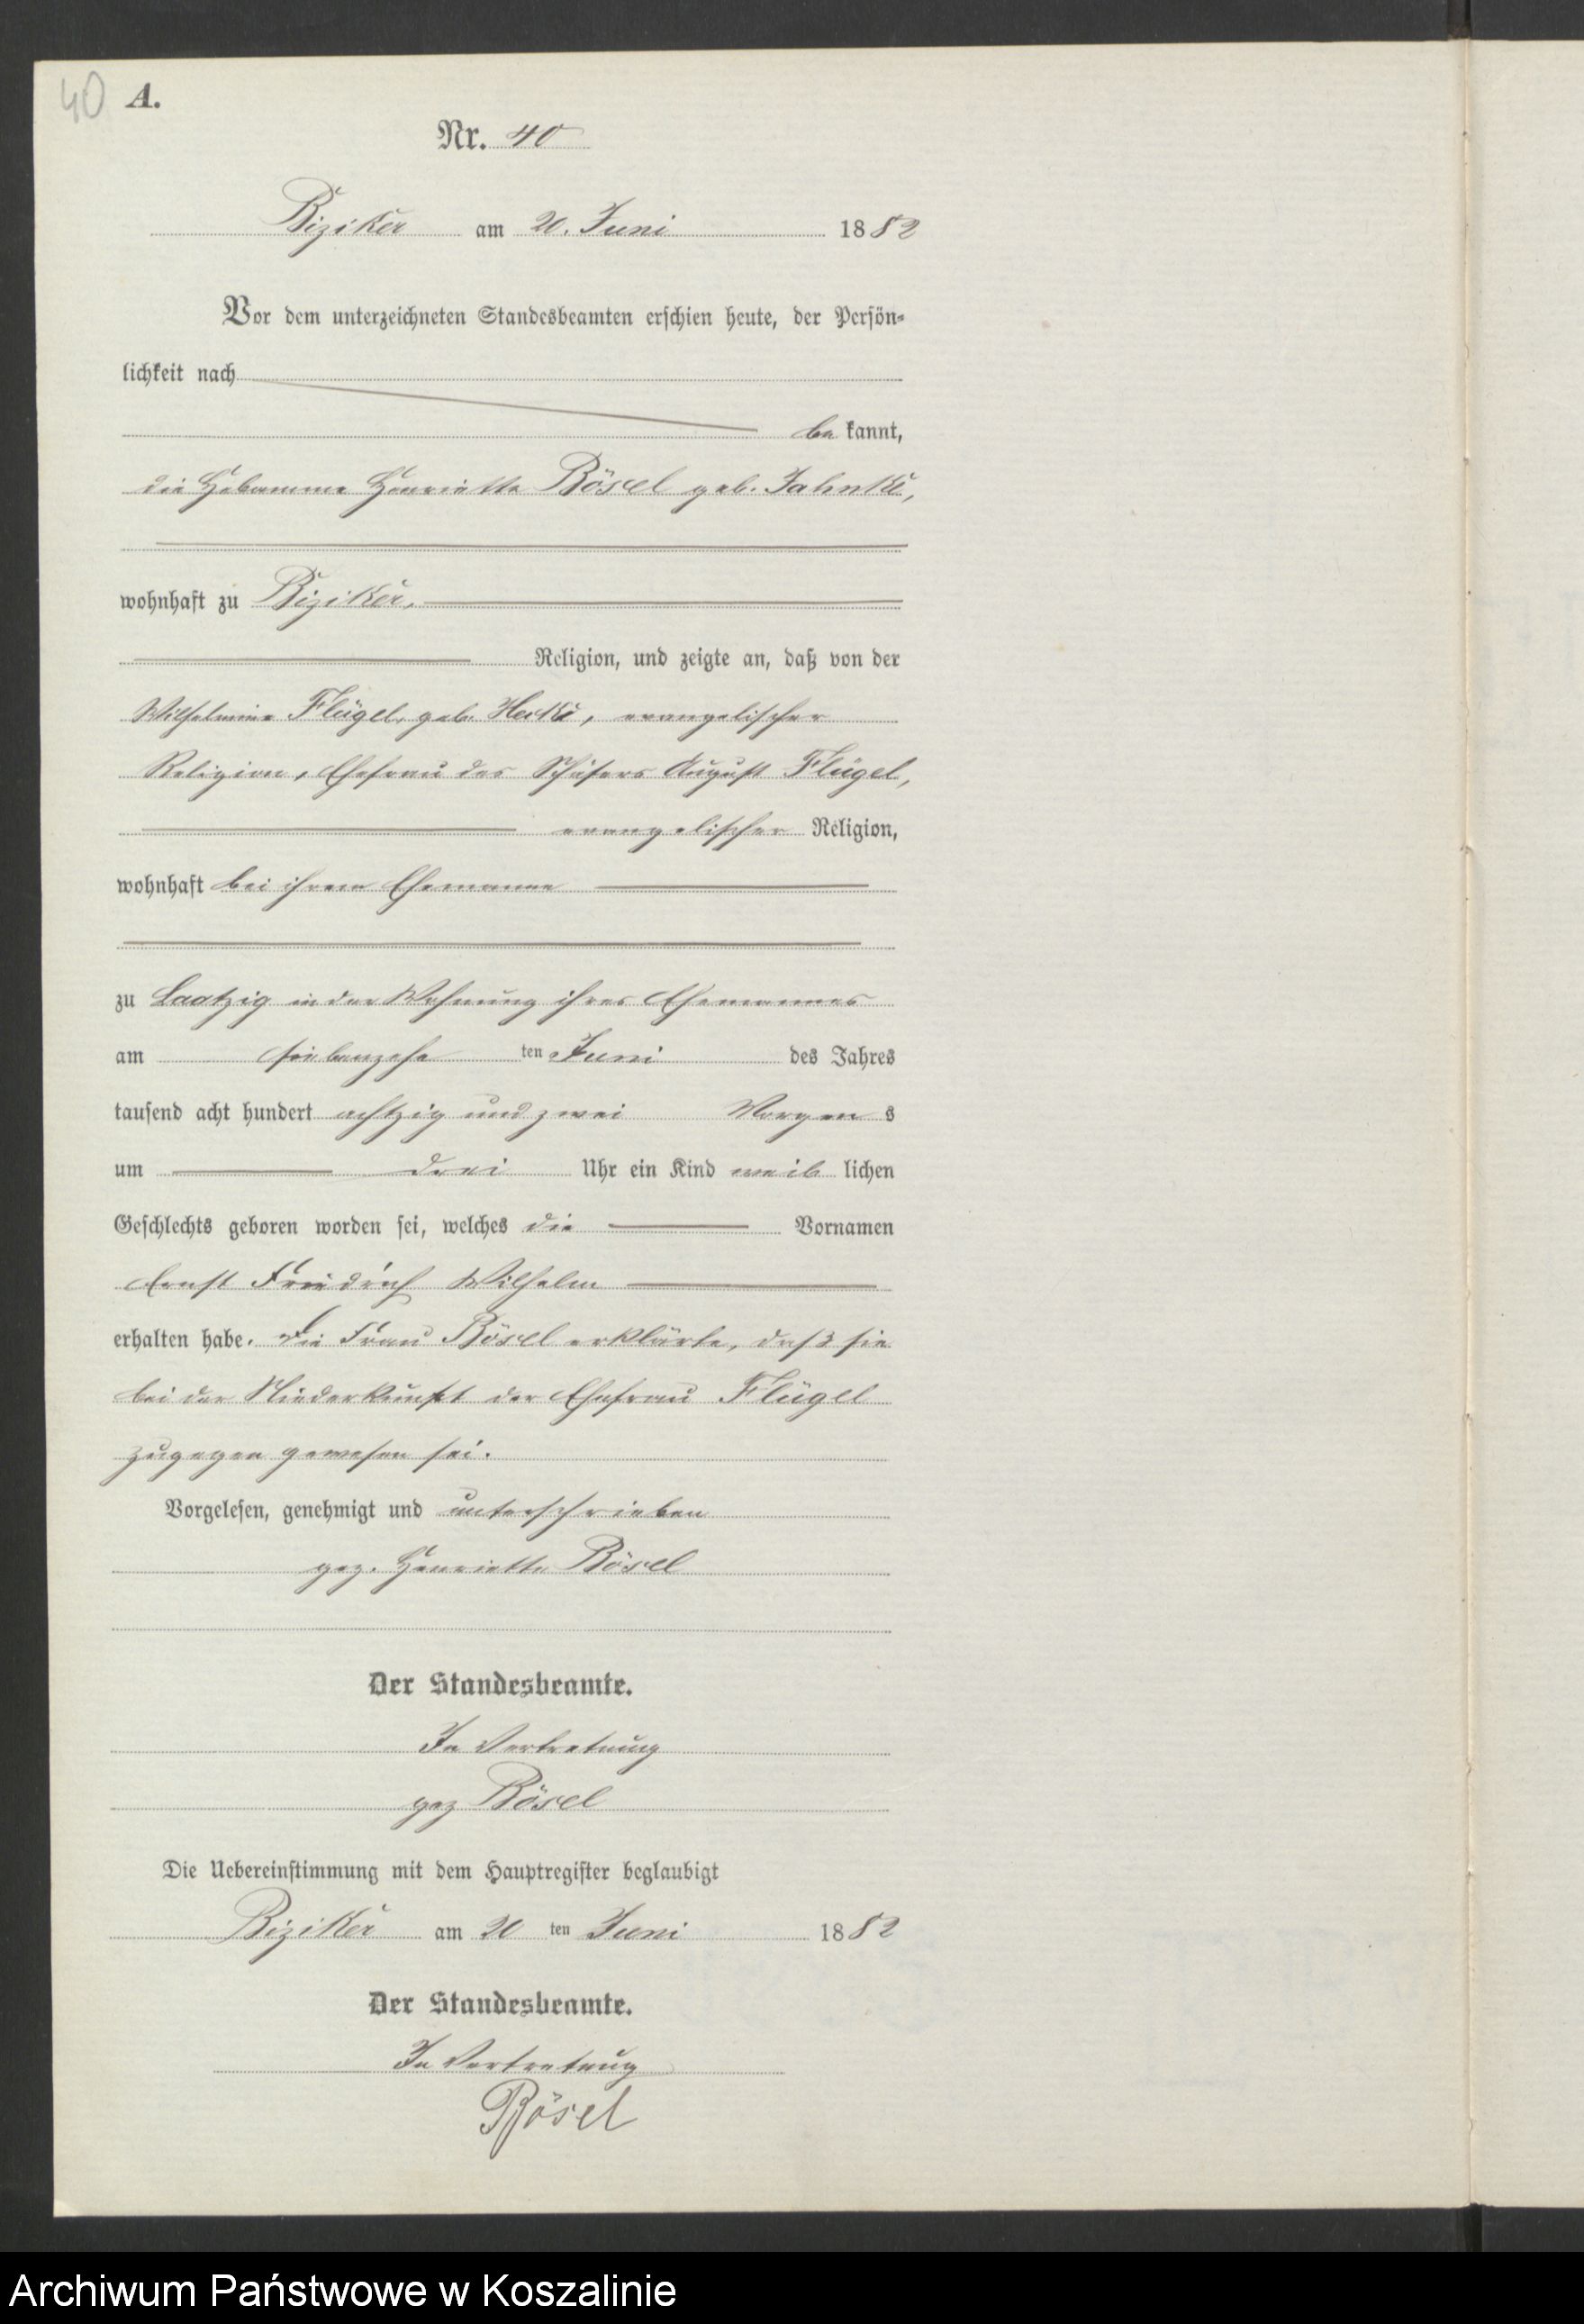 40 A.
Nr. 40
Biziker am 20. Juni 1882
Vor dem unterzeichneten Standesbeamten erschien heute, der Persön-
lichkeit nach
be kannt,
die Hebamme Henriette Bösel geb. Jahnke,
wohnhaft zu Biziker,
Religion, und zeigte an, daß von der
Wilhelmine Flügel, geb. evangelischer
Religion, Ehefrau des Schäfers August Flügel,
evangelischer Religion,
wohnhaft bei ihrem Ehemanne
zu Laatzig in der Wohnung ihres Ehemannes
am siebenzehn ten Juni des Jahres
tausend acht hundert achtzig und zwei Morgen s
um drei Uhr ein Kind weib lichen
Geschlechts geboren worden sei, welches die Vornamen
Ernst Friedrich Wilhelm
erhalten habe. Die Frau Bösel erklärte, daß sie
bei der Niederkunft der Ehefrau Flügel
zugegen gewesen sei.
Vorgelesen, genehmigt und unterschrieben
gez. Henriette Bösel
Der Standesbeamte.
In Vertretung
gez Bösel
Die Uebereinstimmung mit dem Hauptregister beglaubigt
Biziker am 20 ten Juni 1882
Der Standesbeamte.
In Vertretung
Bösel
Archiwum Państwowe w Koszalinie